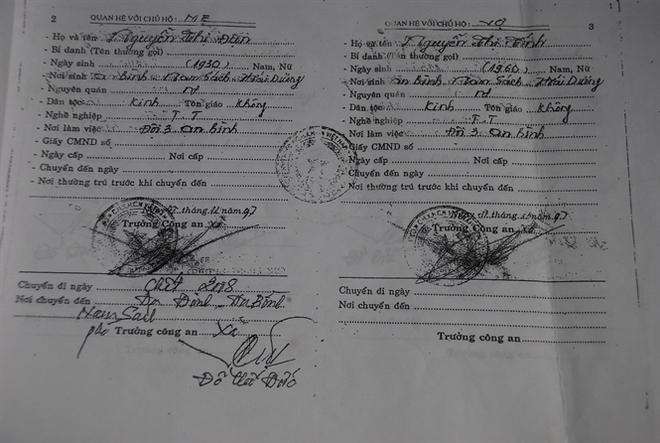 2 QUAN HỆ VỚI CHỦ HỘ: MẸ
- Họ và tên Nguyễn Thị
- Bí danh (Tên thường gọi)
- Ngày sinh (1930) Nam, Nữ
- Nơi sinh An Bình - Nam Sách - Hải Dương
- Nguyên quán nt
- Dân tộc Kinh Tôn giáo không
- Nghề nghiệp T.T
- Nơi làm việc Đội 3 An Bình
- Giấy CMND số
- Ngày cấp Nơi cấp
- Chuyển đến ngày
- Nơi thường trú trước khi chuyển đến
tháng năm 97
Trưởng Công an Xã
Chuyển đi ngày chết 2008
Nơi chuyển đến An Bình
Nam Sách
phó Trưởng công an Xã
Đỗ
QUAN HỆ VỚI CHỦ HỘ: VỢ 3
- Họ và tên Nguyễn Thị
- Bí danh (Tên thường gọi)
- Ngày sinh (1960) Nam, Nữ
- Nơi sinh An Bình - Nam Sách - Hải Dương
- Nguyên quán nt
- Dân tộc Kinh Tôn giáo không
- Nghề nghiệp T.T
Nơi làm việc Đội 3 An Bình
- Giấy CMND số
Ngày cấp Nơi cấp
Chuyển đến ngày
- Nơi thường trú trước khi chuyển đến
tháng năm 97
Trưởng Công an Xã
Chuyển đi ngày
Nơi chuyển đến
Trưởng công an